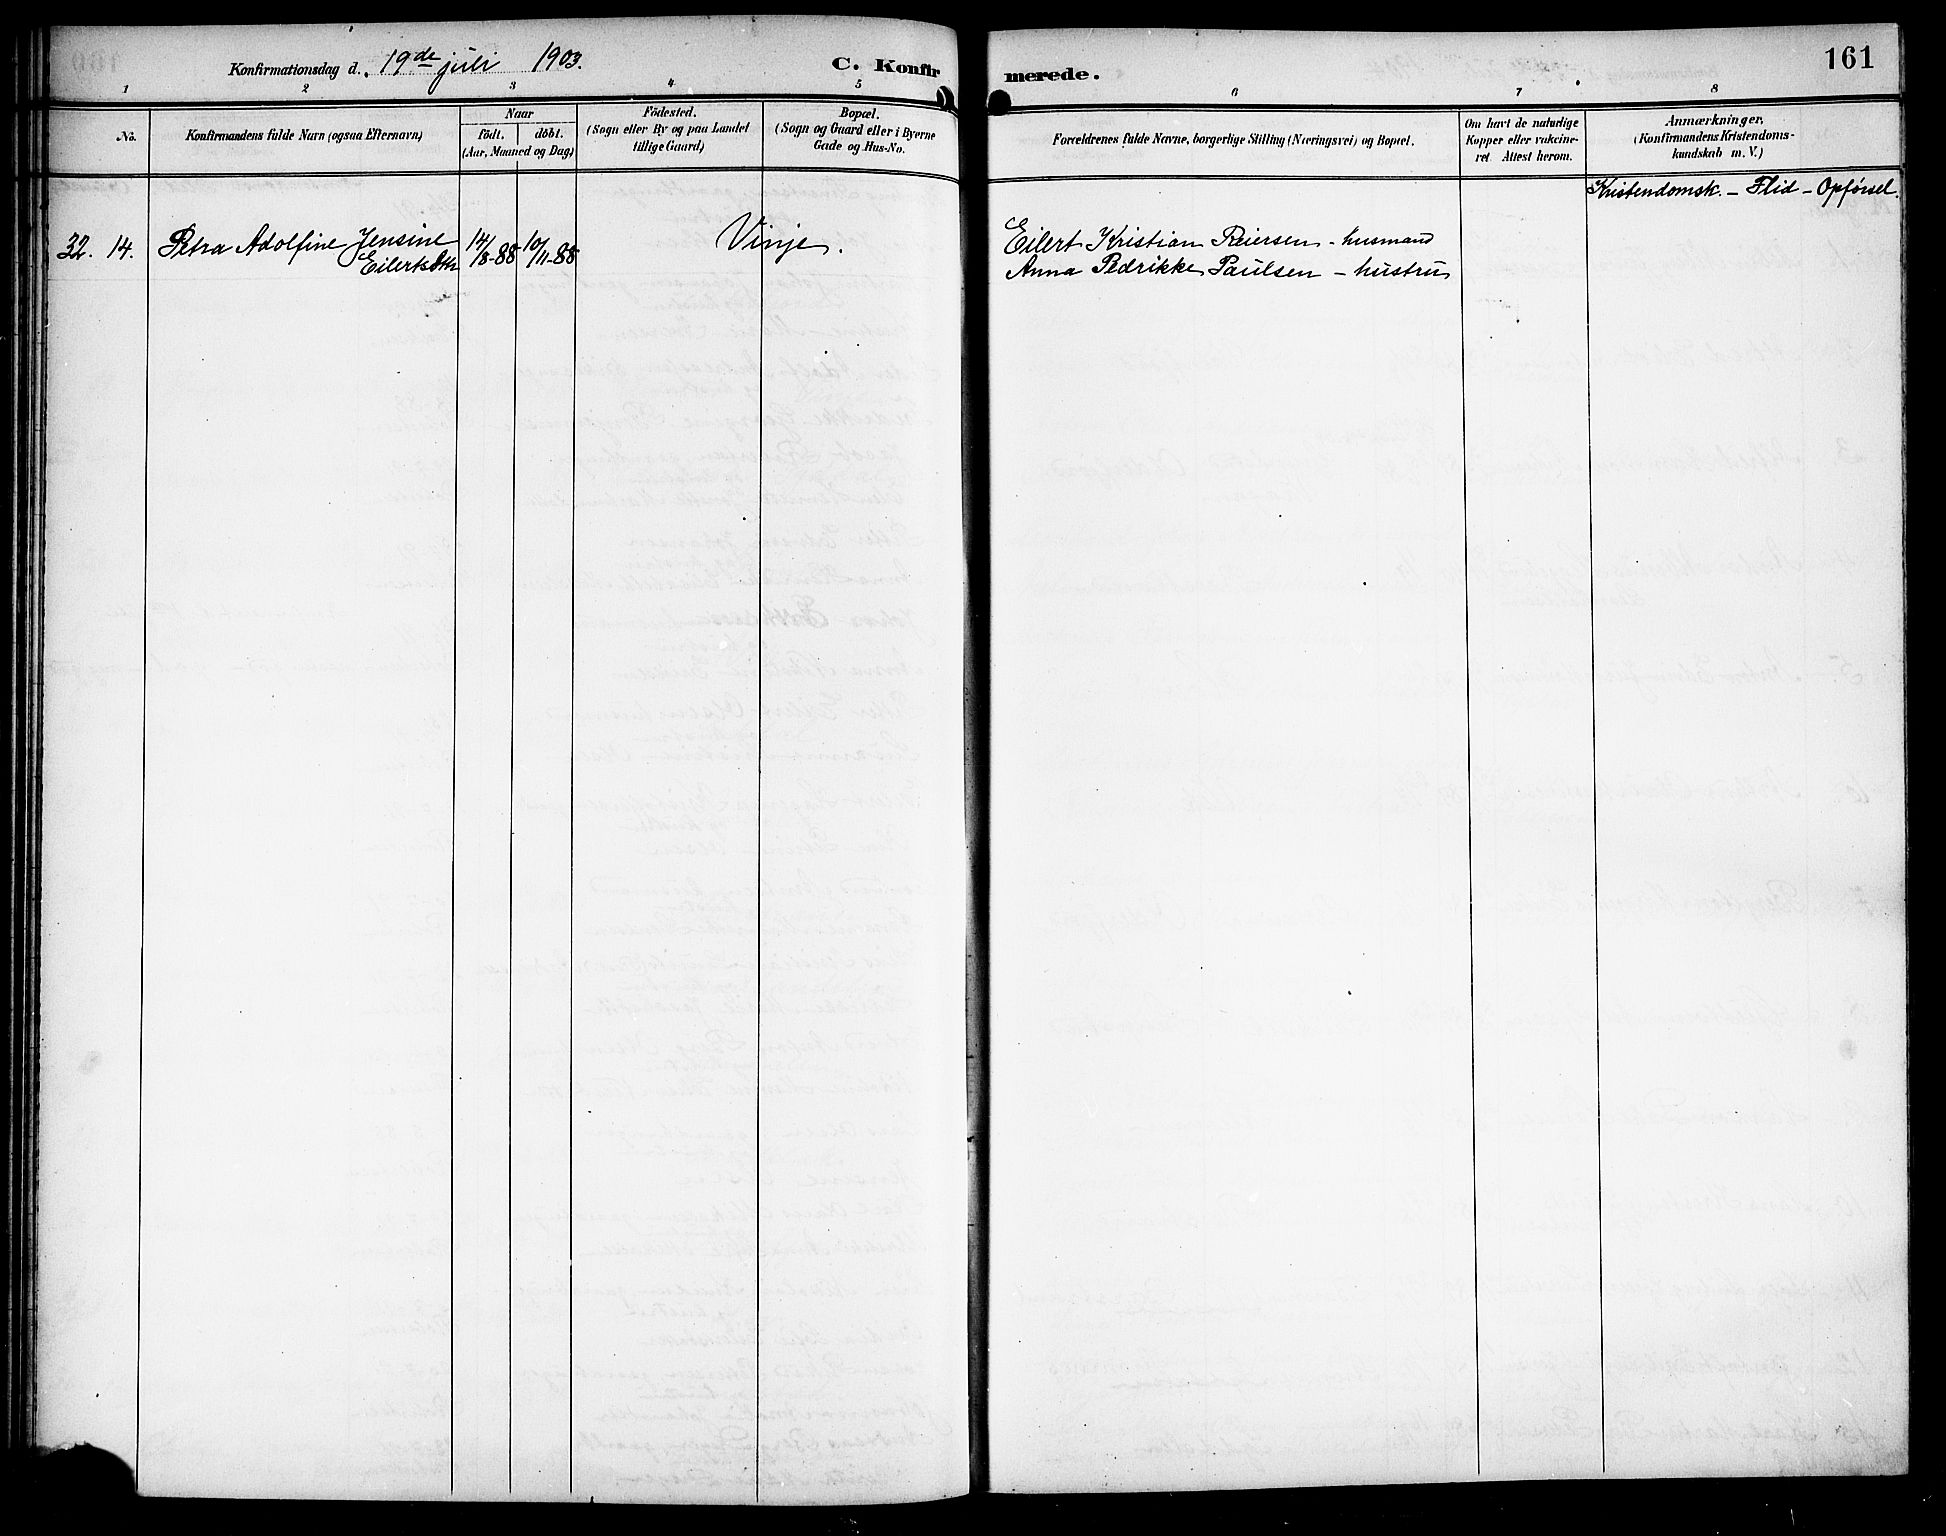 Konfirmationsdag d. 19de juli 1903.
C. Konfir merede.
161
1 2 3 4 5 6 7 8
No.
Konfirmandens fulde Navn (ogsaa Efternavn)
Naar
födt. döbt.
(Aar, Maaned og Dag)
Födested.
(Sogn eller By og paa Landet
tillige Gaard)
Bopæl.
(Sogn og Gaard eller i Byerne
Gade og Hus-No.
Forældrenes fulde Navne, borgerlige Stilling (Næringsvei) og Bopæl.
Om havt de naturlige
Kopper eller vakcine-
ret Attest herom.
Anmærkninger,
(Konfirmandens Kristendoms-
kundskab m. V.)
Kristendomsk. – Flid – Opførsel.
32. 14. Petra Adolfine Jensine
Eilertsdtr 14/8-88 10/11-88 Vinje.
Eilert Kristian Reiersen - husmand
Anna Pedrikke Paulsen – hustru